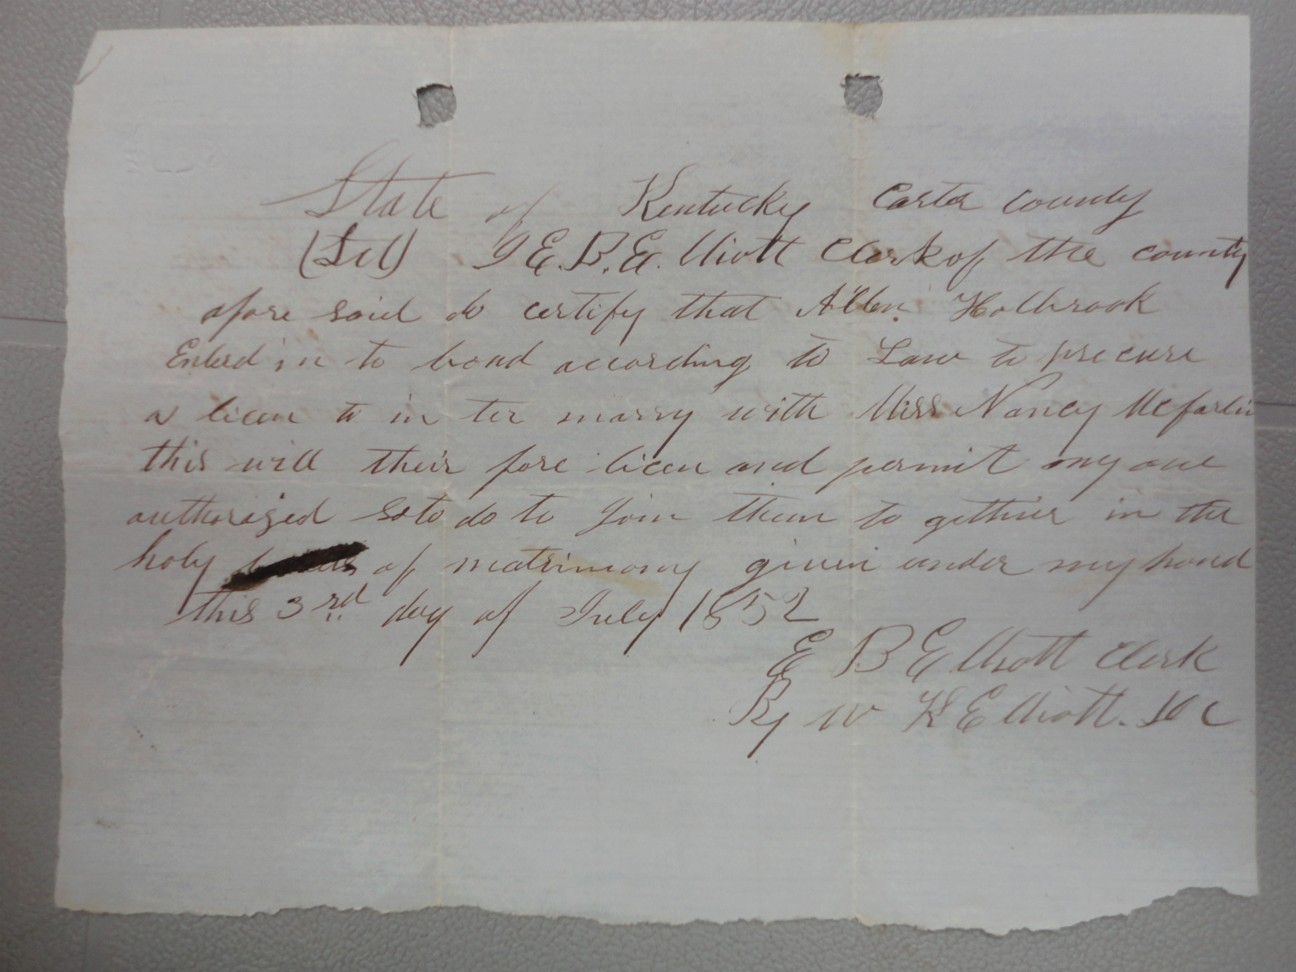 State of Kentucky Carter County
(Sct) I E. B. Elliott Clerk of the county
afore said do certify that Allen Holbrook
Enterd in to bond according to Law to precure
a licen to in ter marry with Miss Nancy Mcfarlin
this will their fore licen and permit any one
authorized so to do to Join them to gether in the
holy of matrimony given under my hand
this 3rd day of July 1852
E B Elliott Clerk
By W K Elliott. DC